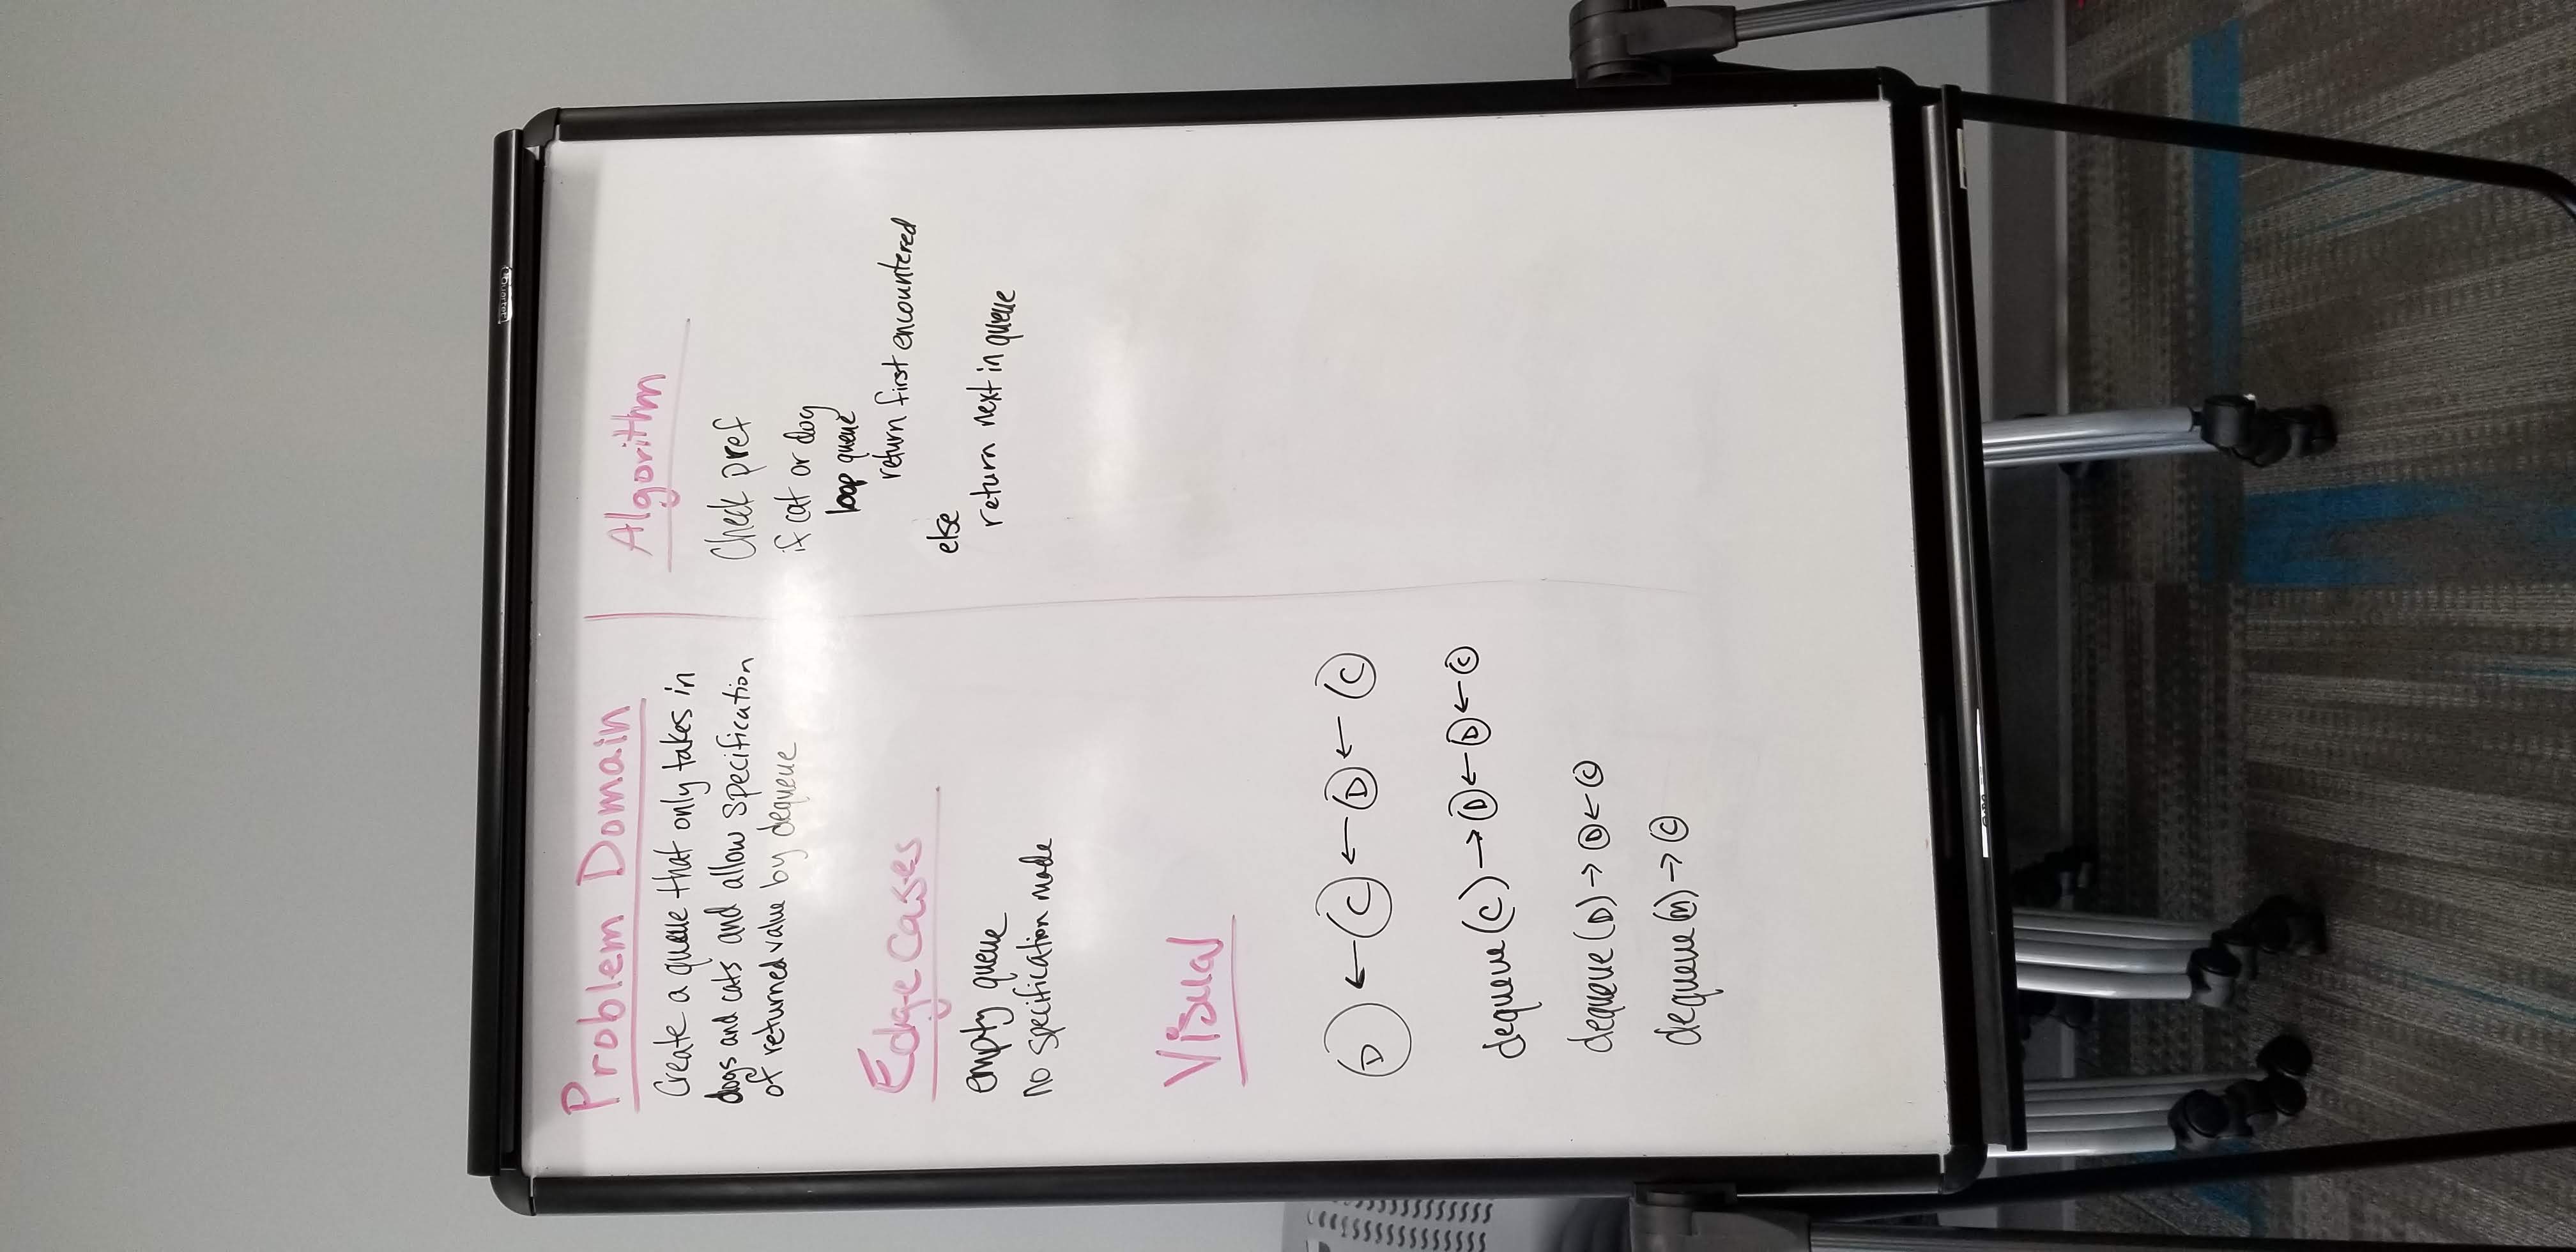 Problem Domain
Create a queue that only takes in
dogs and cats and allow specification
of returned value by dequeue
Edge cases
empty queue
no specification made
Visual
D ← C ← D ← C
dequeue(C) → D ← D ← C
dequeue(D) → D ← C
dequeue(n) → C
Algorithm
Check pref
if cat or dog
loop queue
return first encountered
else
return next in queue
Quartet